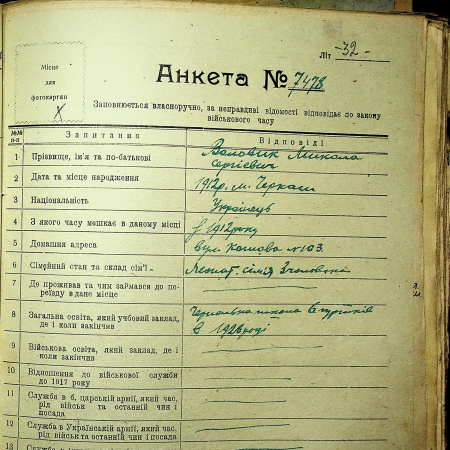 Місце
для
фотокартки
Літ -32-
Анкета № 7478
Заповнюється власноручно, за неправдиві відомості відповідає по закону
військового часу
№№ п-п Запитання Відповіді
1 Прізвище, ім'я та по-батькові Воловик Микола
Сергієвич
2 Дата та місце народження 1912р. м. Черкаси
3 Національність Українець
4 З якого часу мешкає в даному місці з 1912 року
5 Домашня адреса вул. №103
6 Сімрйний стан та склад сім'ї сімія
7 Де проживав та чим займався до пе-
реїзду в дане місце
8 Загальна освіта, який учбовий заклад,
де і коли закінчив школа
в 1928 році
9 Військова освіта, який заклад, де і
коли закінчив
10 Відношення до військової служби
до 1917 року
11 Служба в б. царській армії, який час,
рід військ та останній чин і
посада
12 Служба в Українській армії, який час,
рід військ та останній чин і посада
13